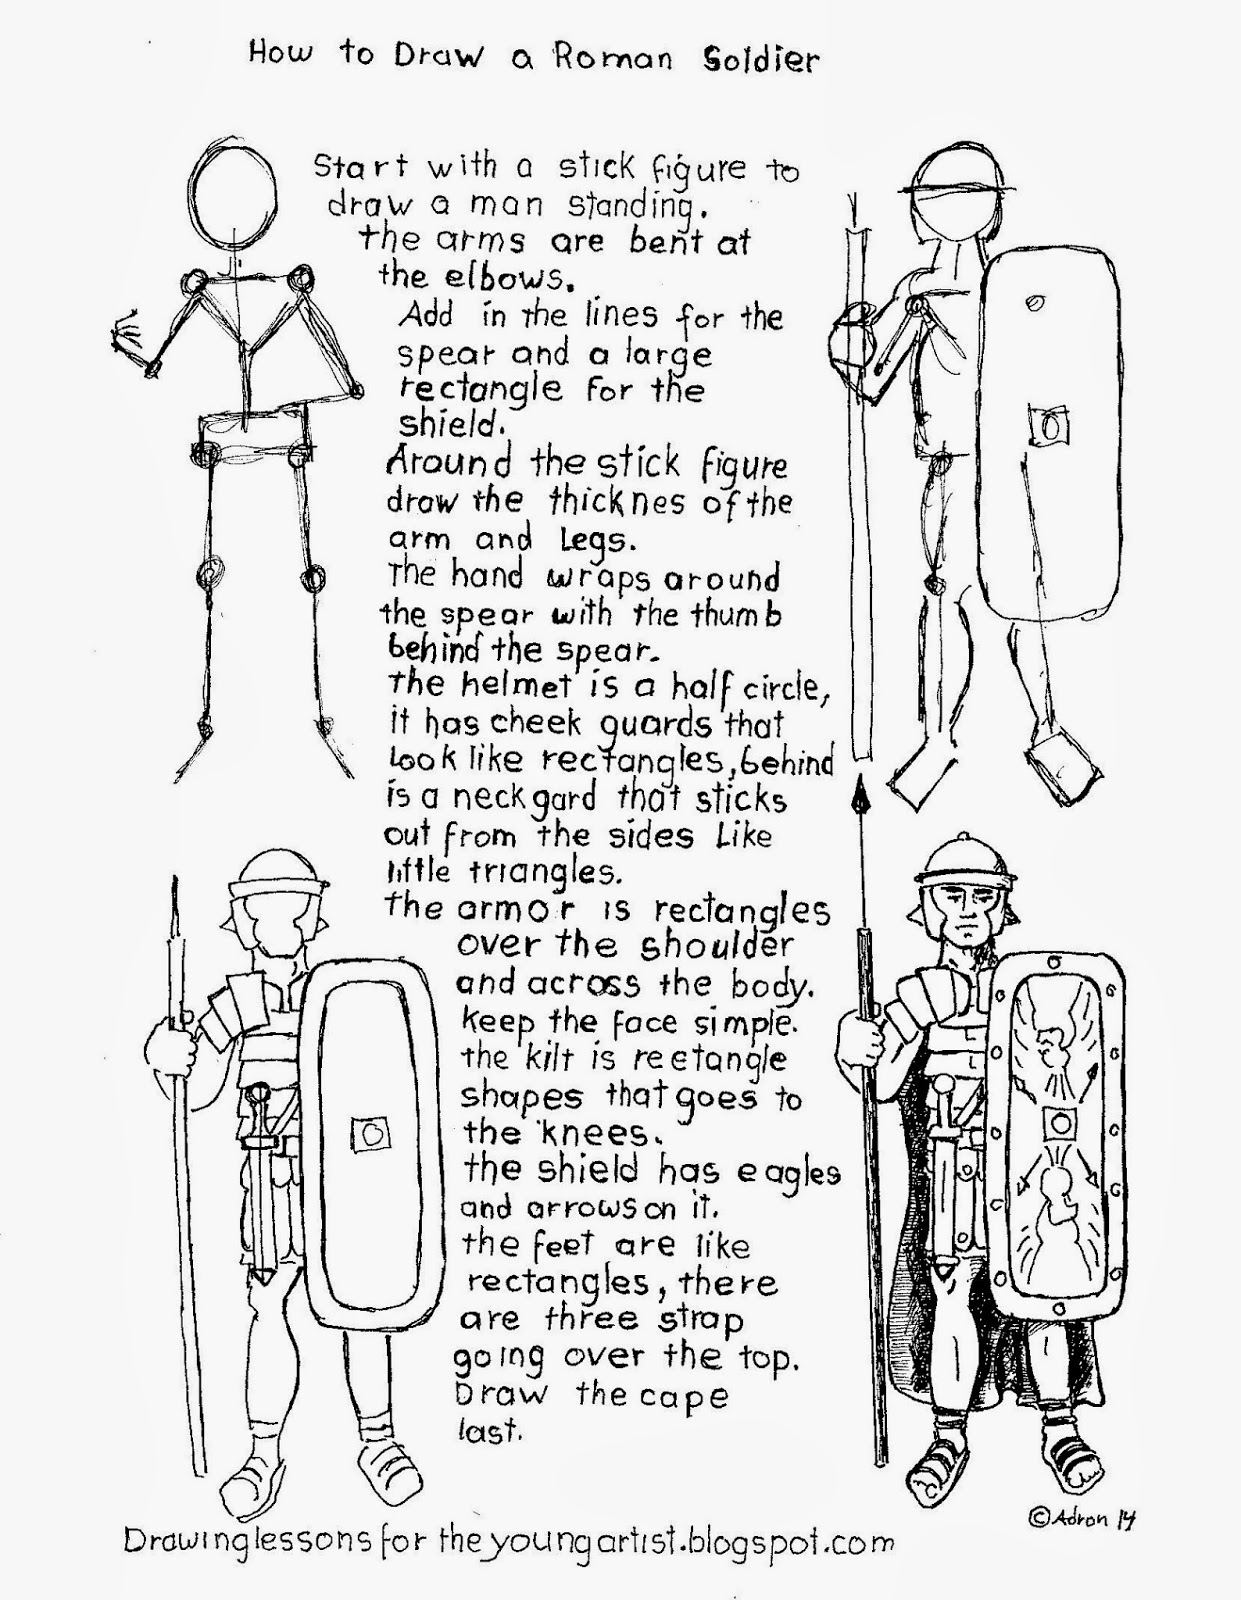 How to Draw a Roman Soldier
Start with a stick figure to
draw a man standing.
the arms are bent at
the elbows.
Add in the lines for the
spear and a large
rectangle for the
shield.
Around the stick figure
draw the thicknes of the
arm and Legs.
The hand wraps around
the spear with the thumb
behind the spear.
the helmet is a half circle,
it has cheek guards that
Look like rectangles, behind
is a neck gard that sticks
out from the sides Like
little triangles.
the armor is rectangles
over the shoulder
and across the body.
keep the face simple.
the kilt is reetangle
shapes that goes to
the knees.
the shield has eagles
and arrows on it.
the feet are like
rectangles, there
are three strap
going over the top.
Draw the cape
last.
© Adron 14
Drawinglessons for theyoungartist.blogspot.com